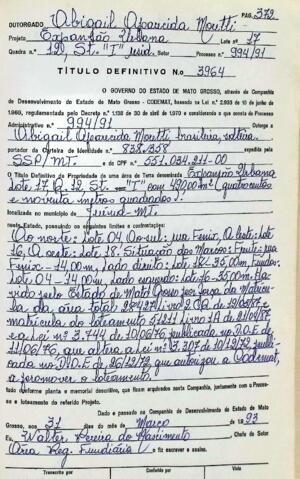 PAG. 372
OUTORGADO Abigail Aparecida Moretti
Projeto Expansão Urbana Lote 17
Quadra n.º 12, St. "I" Juína Setor Processo n.º 994/91
TÍTULO DEFINITIVO N.o 3964
O GOVERNO DO ESTADO DE MATO GROSSO, através da Companhia
de Desenvolvimento do Estado de Mato Grosso - CODEMAT, baseado na Lei n.º 2.933 de 10 de junho
de 1969, regulamentada pelo Decreto n.º 1.138 de 30 de abril de 1970 e considerando o que consta do Processo
Administrativo n.º 994/91 Outorga a
Abigail Aparecida Moretti, brasileira, solteira,
portador da Carteira de Identidade n.º 828.358 expedida pela
SSP/MT. e do CPF n.º 551.034.211-00
o Título Definitivo de Propriedade de uma área de Terra denominada Expansão Urbana
Lote 17, Q. 12, St. "I" com 490,00 m² (quatrocentos
e noventa metros quadrados).
localizada no município de Juína-MT.
neste Estado, possuindo os seguintes limites e confrontações:
Ao norte: Lote 04. Ao sul: rua Fenix, A Leste: Lote
16, A oeste: 18. Situação dos Marcos: Frente: rua
Fenix - 14,00m, Lado direito: Lote 18 - 35,00m, Fundos:
Lote 04 - 14,00m, Lado esquerdo: Lote 16 - 35,00m.
pelo Estado de Mato Grosso por força da Matrícu-
la da área total
matrícula do loteamento
e a Lei n.º 3.744 de 10/06/76, publicada no D.O.E de
11/06/76, que altera a Lei n.º 3.307 de 10/12/72, publi-
cada no D.O.E. de 26/12/72 que autorizou a Codemat,
a promover o loteamento.
tudo conforme planta e memorial descritivo, que ficam arquivados nesta Companhia, juntamente com o Proces-
so e loteamento do referido Projeto.
Dado e passado na Companhia de Desenvolvimento do Estado de Mato
Grosso, aos 31 dias do mês de Março de 1993
Eu, Walter Pereira do Nascimento Chefe do Setor
Área Reg. Fundiária fiz escrever e assino.
Transcrito por Conferido por Visto